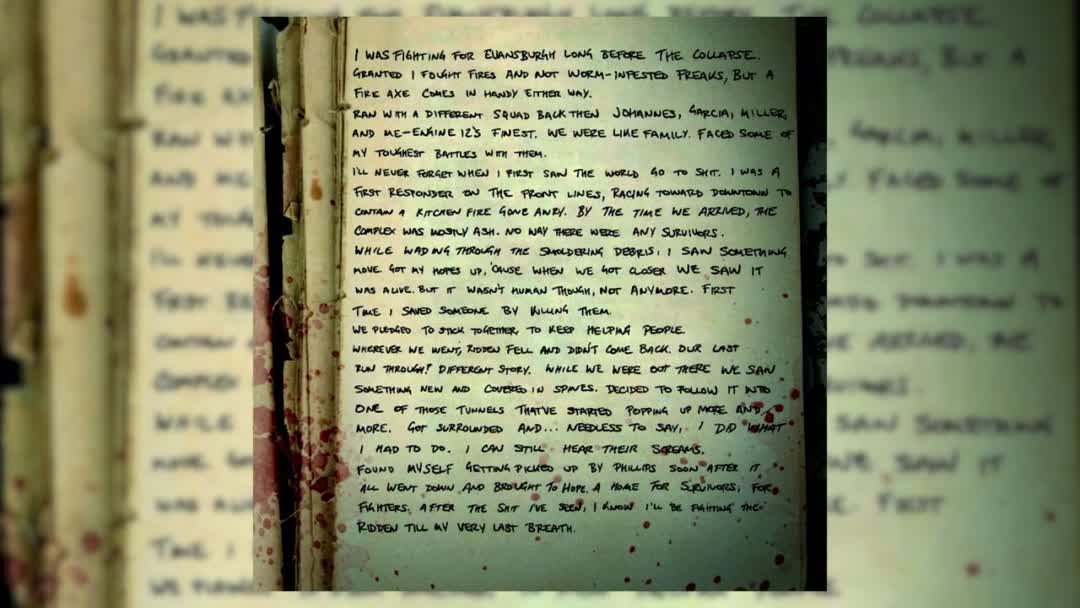 I WAS FIGHTING FOR EVANSBURGH LONG BEFORE THE COLLAPSE.
GRANTED I FOUGHT FIRES AND NOT WORM-INFESTED FREAKS, BUT A
FIRE AXE COMES IN HANDY EITHER WAY.
RAN WITH A DIFFERENT SQUAD BACK THEN JOHANNES, GARCIA, MILLER,
AND ME-ENGINE 12'S FINEST. WE WERE LIKE FAMILY. FACED SOME OF
MY TOUGHEST BATTLES WITH THEM.
I'LL NEVER FORGET WHEN I FIRST SAW THE WORLD GO TO SHIT. I WAS A
FIRST RESPONDER ON THE FRONT LINES, RACING TOWARD DOWNTOWN TO
CONTAIN A KITCHEN FIRE GONE AWRY. BY THE TIME WE ARRIVED, THE
COMPLEX WAS MOSTLY ASH. NO WAY THERE WERE ANY SURVIVORS.
WHILE WADING THROUGH THE SMOLDERING DEBRIS, I SAW SOMETHING
MOVE. GOT MY HOPES UP, 'CAUSE WHEN WE GOT CLOSER WE SAW IT
WAS ALIVE. BUT IT WASN'T HUMAN THOUGH, NOT ANYMORE. FIRST
TIME I SAVED SOMEONE BY KILLING THEM.
WE PLEDGED TO STICK TOGETHER, TO KEEP HELPING PEOPLE.
WHEREVER WE WENT, RIDDEN FELL AND DIDN'T COME BACK. OUR LAST
RUN THROUGH? DIFFERENT STORY. WHILE WE WERE OUT THERE WE SAW
SOMETHING NEW AND COVERED IN SPINES. DECIDED TO FOLLOW IT INTO
ONE OF THOSE TUNNELS THAT'VE STARTED POPPING UP MORE AND
MORE. GOT SURROUNDED AND... NEEDLESS TO SAY, I DID WHAT
I HAD TO DO. I CAN STILL HEAR THEIR SCREAMS.
FOUND MYSELF GETTING PICKED UP BY PHILLIPS SOON AFTER IT
ALL WENT DOWN AND BROUGHT TO HOPE. A HOME FOR SURVIVORS, FOR
FIGHTERS. AFTER THE SHIT I'VE SEEN, I KNOW I'LL BE FIGHTING THE
RIDDEN TILL MY VERY LAST BREATH.